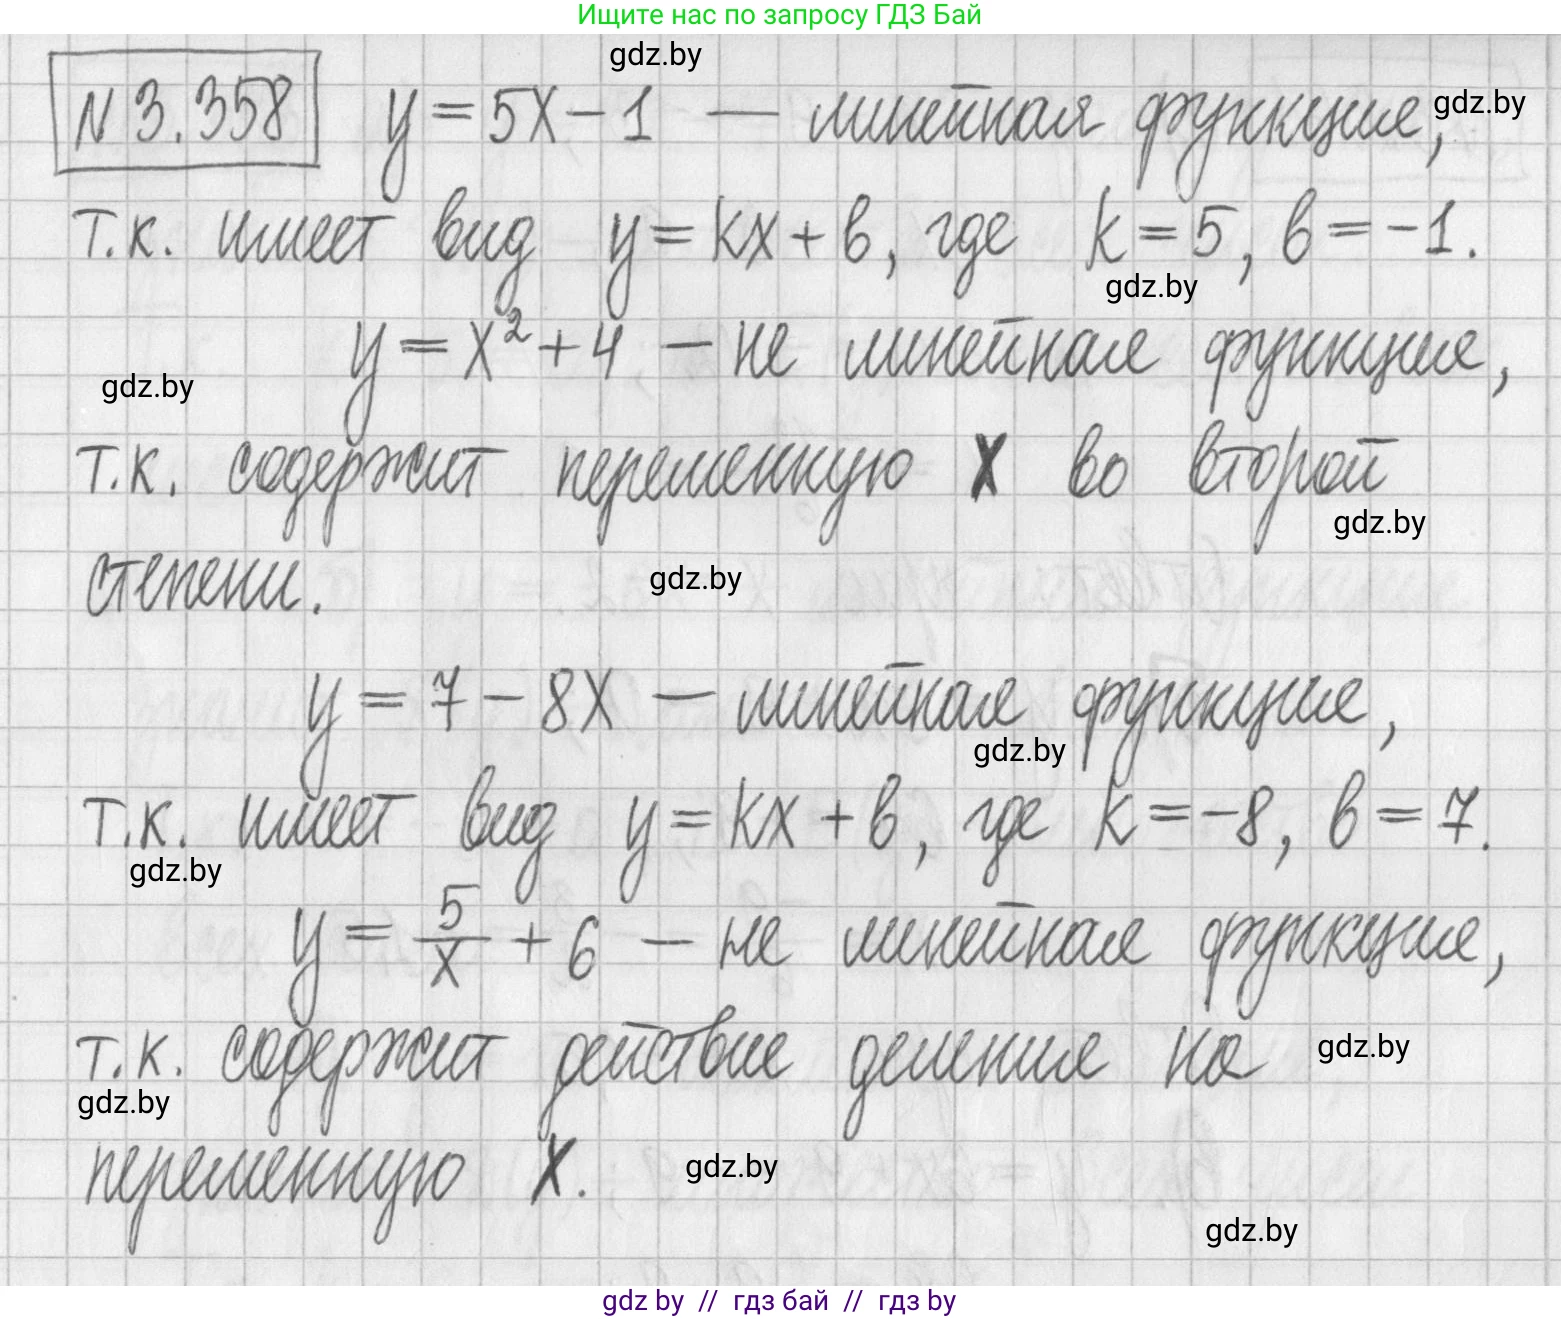 Ищите нас по запросу ГДЗ Бай
gdz.by
N 3.358 y = 5x - 1 — линейная функция, gdz.by
т.к. имеет вид y = kx + b, где k = 5, b = -1.
gdz.by
y = x² + 4 — не линейная функция,
gdz.by
т.к. содержит переменную x во второй
gdz.by
степени. gdz.by
y = 7 - 8x — линейная функция,
gdz.by
т.к. имеет вид y = kx + b, где k = -8, b = 7.
gdz.by
y = 5/x + 6 — не линейная функция,
т.к. содержит действие деления на gdz.by
gdz.by
переменную x. gdz.by
gdz.by
gdz by // гдз бай // гдз by